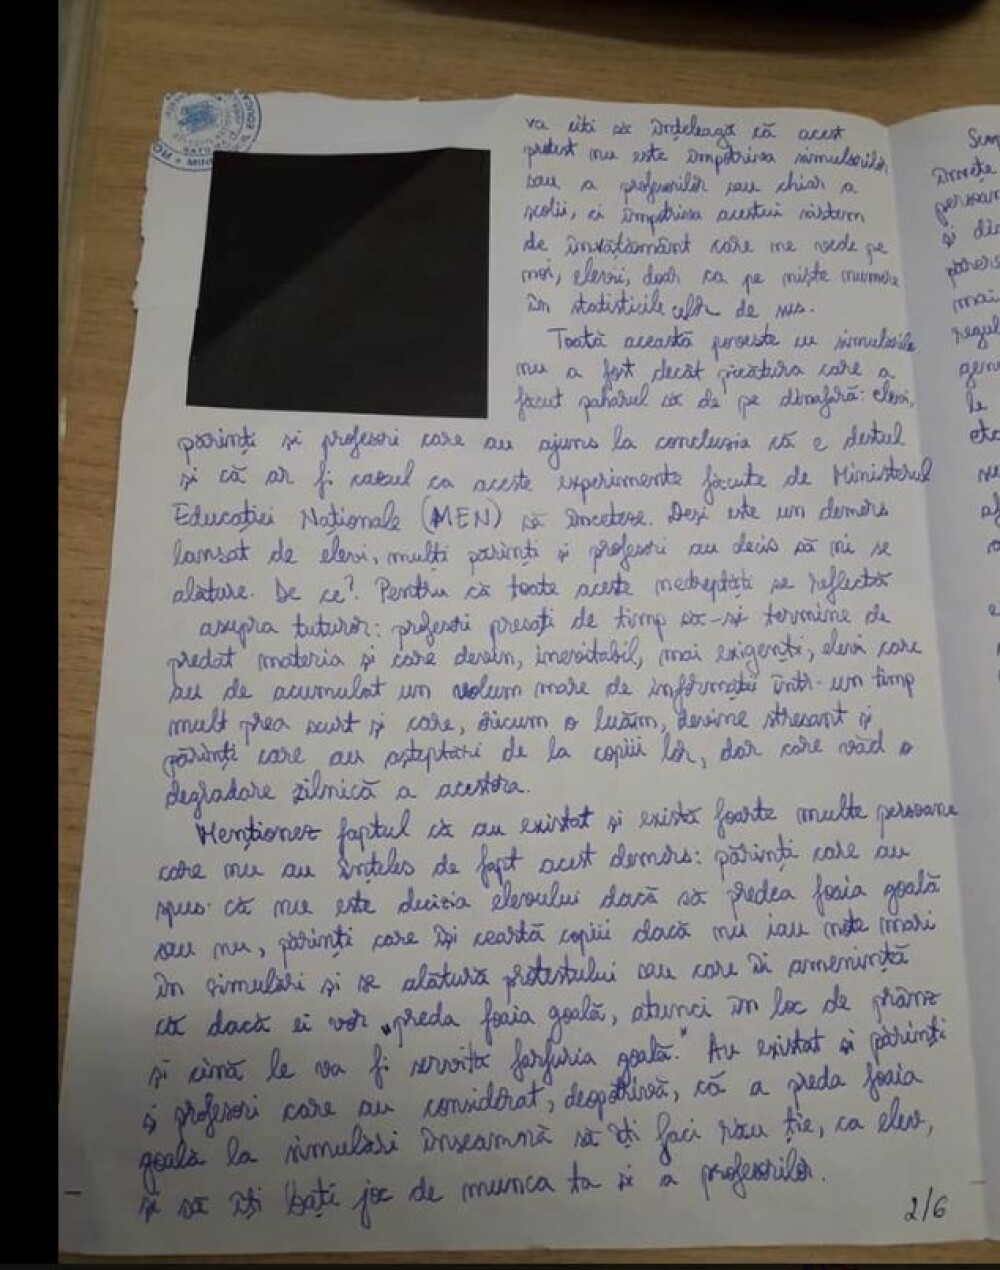 va citi să înțeleagă că acest
protest nu este împotriva simulărilor
sau a profesorilor sau chiar a
școlii, ci împotriva acestui sistem
de învățământ care ne vede pe
noi, elevii, doar ca pe niște numere
în statisticile celor de sus.
Toată această poveste cu simulările
nu a fost decât picătura care a
făcut paharul să de pe dinafară: elevi,
părinți și profesori care au ajuns la concluzia că e destul
și că ar fi cazul ca aceste experimente făcute de Ministerul
Educației Naționale (MEN) să înceteze. Deși este un demers
lansat de elevi, mulți părinți și profesori au decis să ni se
alăture. De ce? Pentru că toate aceste nedreptăți se reflectă
asupra tuturor: profesori presați de timp să-și termine de
predat materia și care devin, inevitabil, mai exigenți, elevi care
au de acumulat un volum mare de informații într-un timp
mult prea scurt și care, oricum o luăm, devine stresant și
părinți care au așteptări de la copiii lor, dar care văd o
degradare zilnică a acestora.
Menționez faptul că au existat și există foarte multe persoane
care nu au înțeles de fapt acest demers: părinți care au
spus că nu este decizia elevului dacă să predea foaia goală
sau nu, părinți care își ceartă copiii dacă nu iau note mari
în simulări și se alătură protestului sau care îi amenință
că dacă ei vor „preda foaia goală, atunci în loc de prânz
și cină le va fi servită farfuria goală." Au existat și părinți
și profesori care au considerat, deopotrivă, că a preda foaia
goală la simulări înseamnă să îți faci rău ție, ca elev,
și să îți bați joc de munca ta și a profesorilor.
2/6